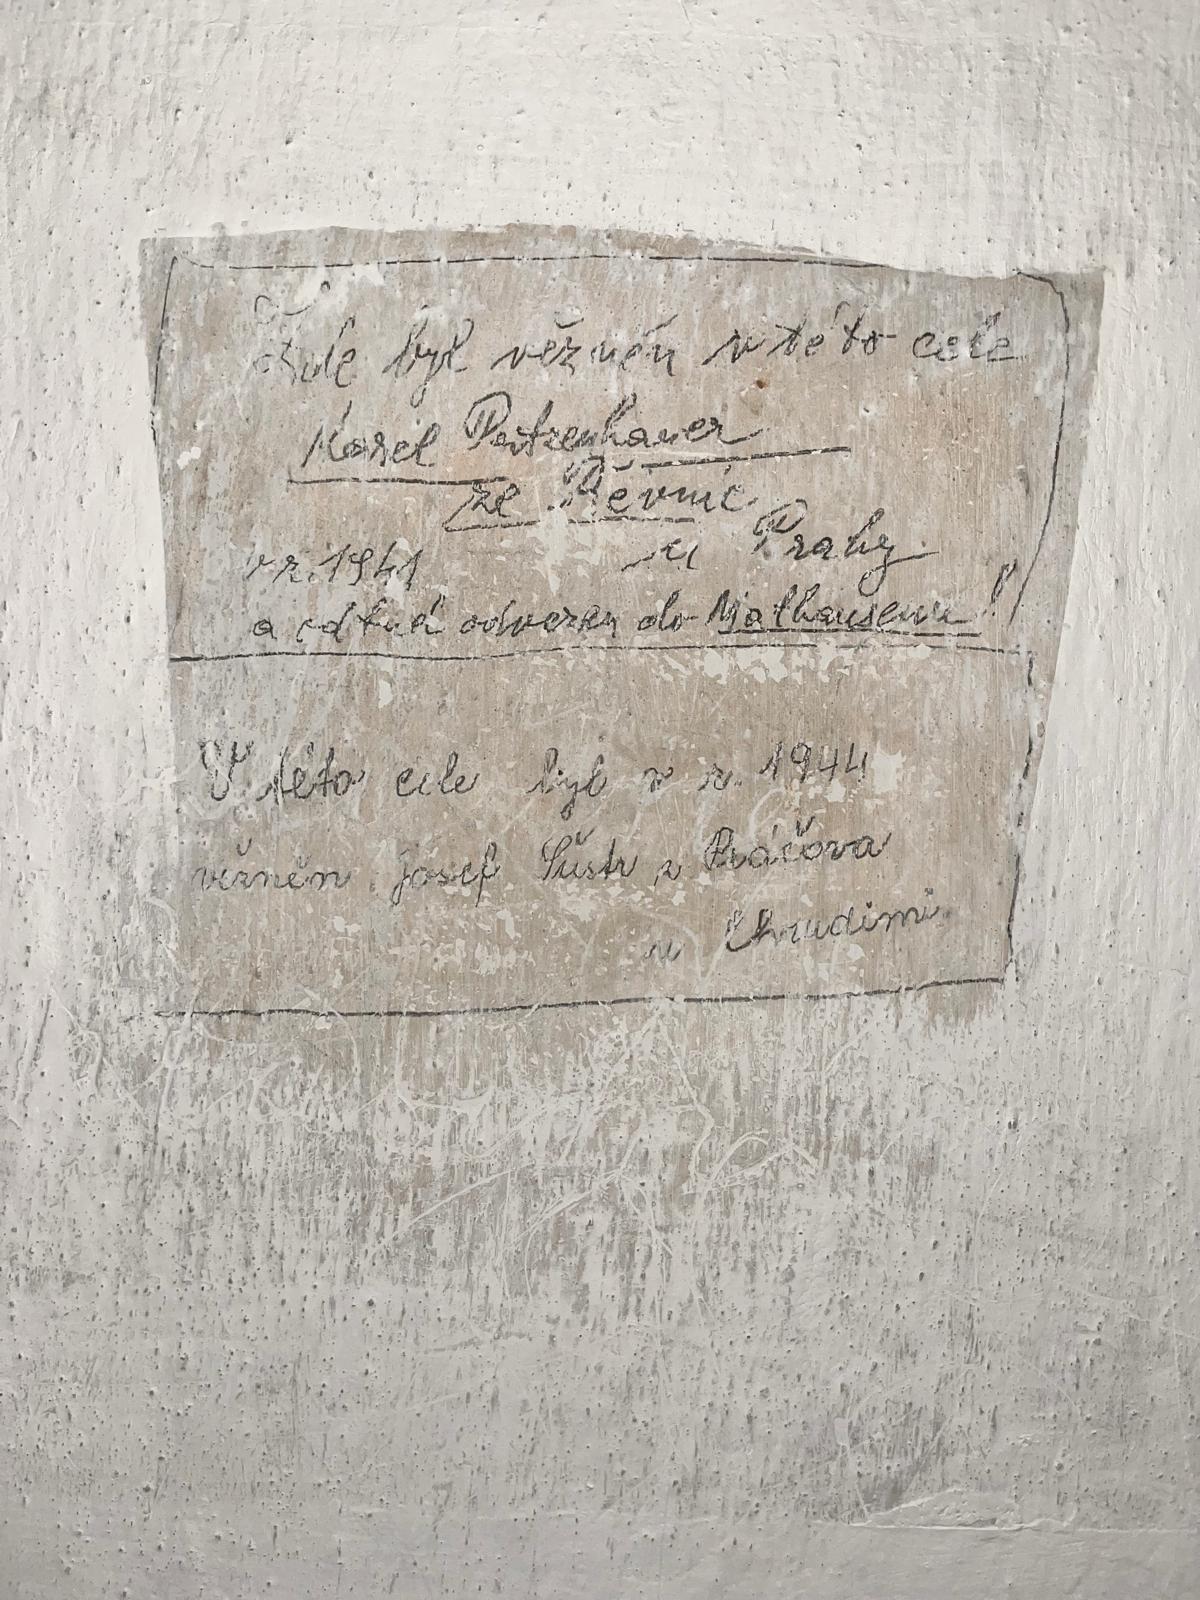 Zde byl vězněn v této cele
Karel Patzenhauer
ze Řevnic
u Prahy
v r. 1941
a odtud odvezen do Mathausenu!
V této cele byl v r. 1944
vězněn Josef Šustr z Práčova
u Chrudimi